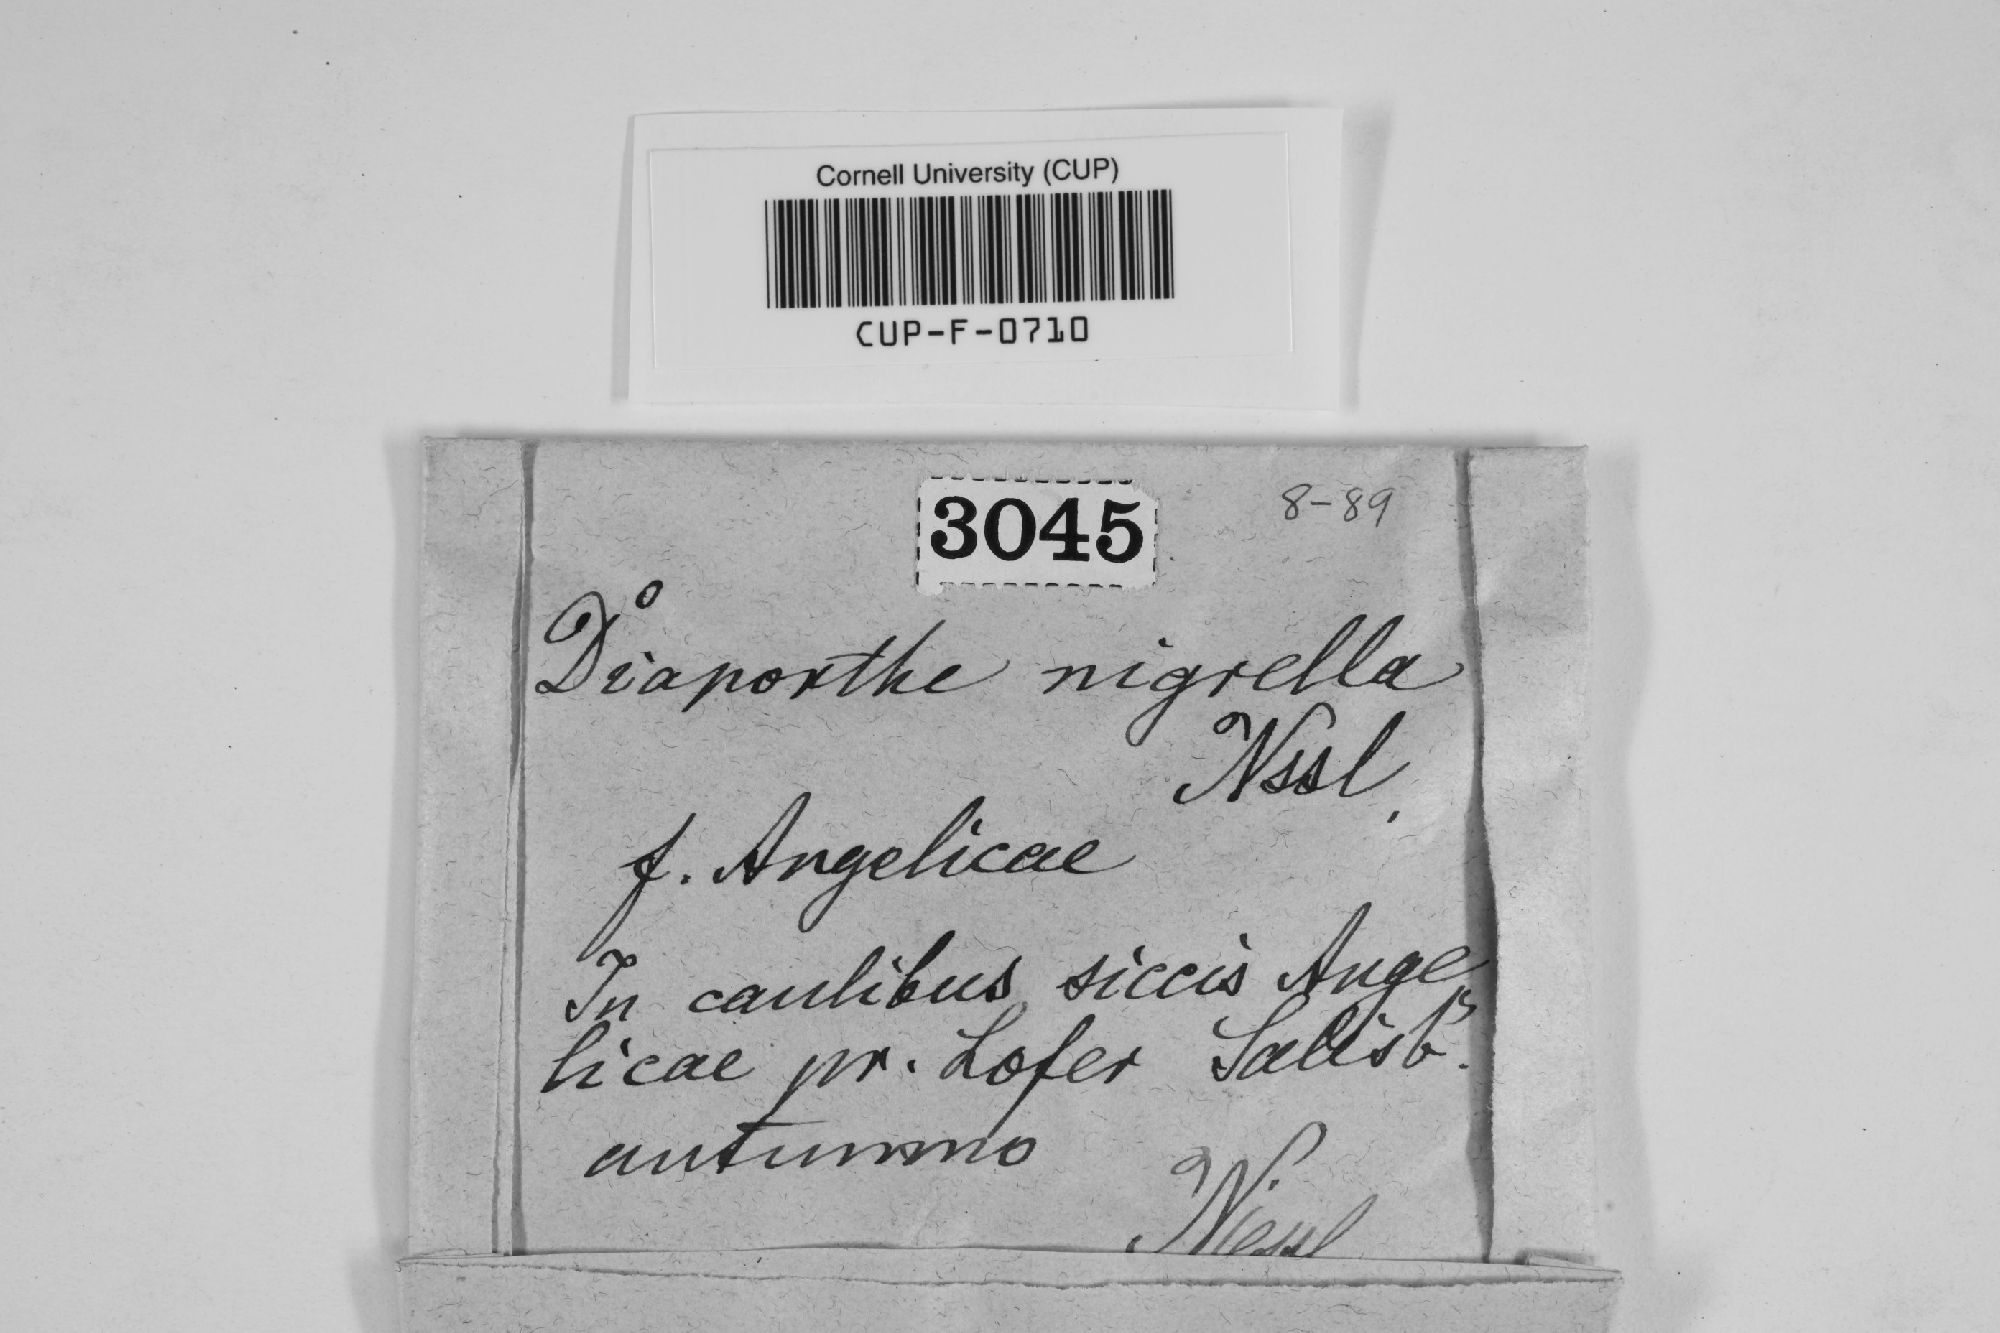 Cornell University (CUP)
CUP-F-0710
3045
8-89
Diaporthe nigrella
Nssl.
f. Angelicae
In caulibus siccis Ange
licae pr. Lofer Salisb.
autumno
Niessl